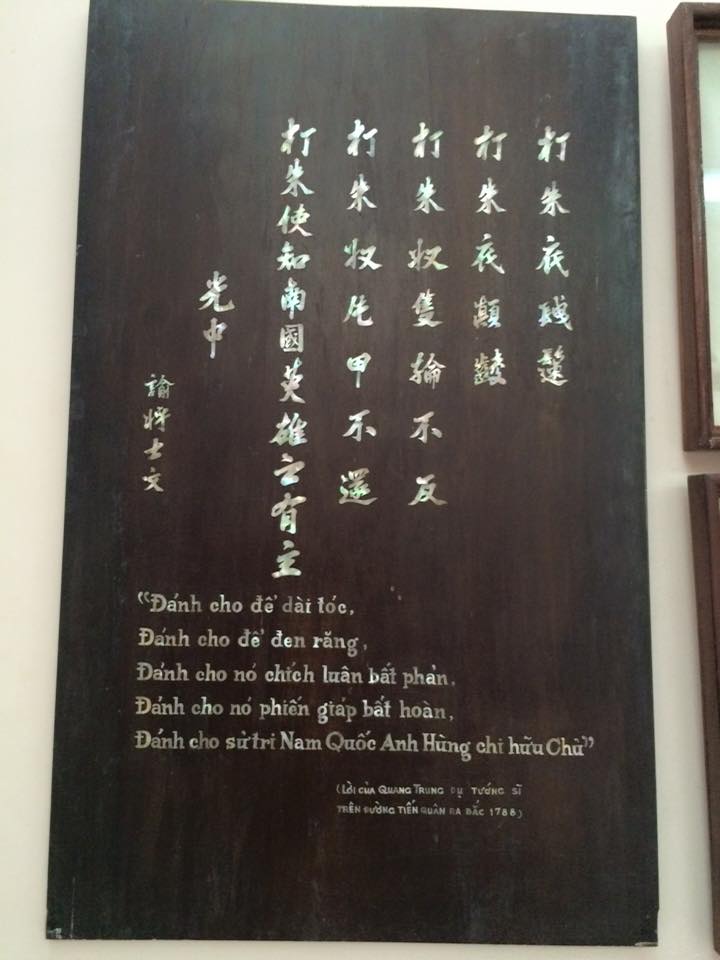 打朱底
打朱底顛𪘵
打朱奴隻輪不反
打朱奴片甲不還
打朱使知南國英雄之有主
光中
諭將士文
“Đánh cho để dài tóc,
Đánh cho để đen răng,
Đánh cho nó chích luân bất phản,
Đánh cho nó phiến giáp bất hoàn,
Đánh cho sử tri Nam Quốc Anh Hùng chi hữu Chủ”
(LỜI CỦA QUANG TRUNG DỤ TƯỚNG SĨ
TRÊN ĐƯỜNG TIẾN QUÂN RA BẮC 1788)